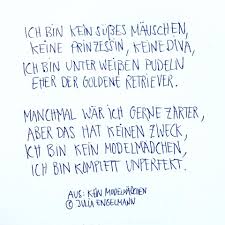 ICH BIN KEIN SÜẞES MÄUSCHEN,
KEINE PRINZESSIN, KEINE DIVA,
ICH BIN UNTER WEIẞEN PUDELN
EHER DER GOLDENE RETRIEVER.
MANCHMAL WÄR ICH GERNE ZARTER,
ABER DAS HAT KEINEN ZWECK,
ICH BIN KEIN MODELMÄDCHEN,
ICH BIN KOMPLETT UNPERFEKT.
AUS: KEIN MODELMÄDCHEN
© JULIA ENGELMANN